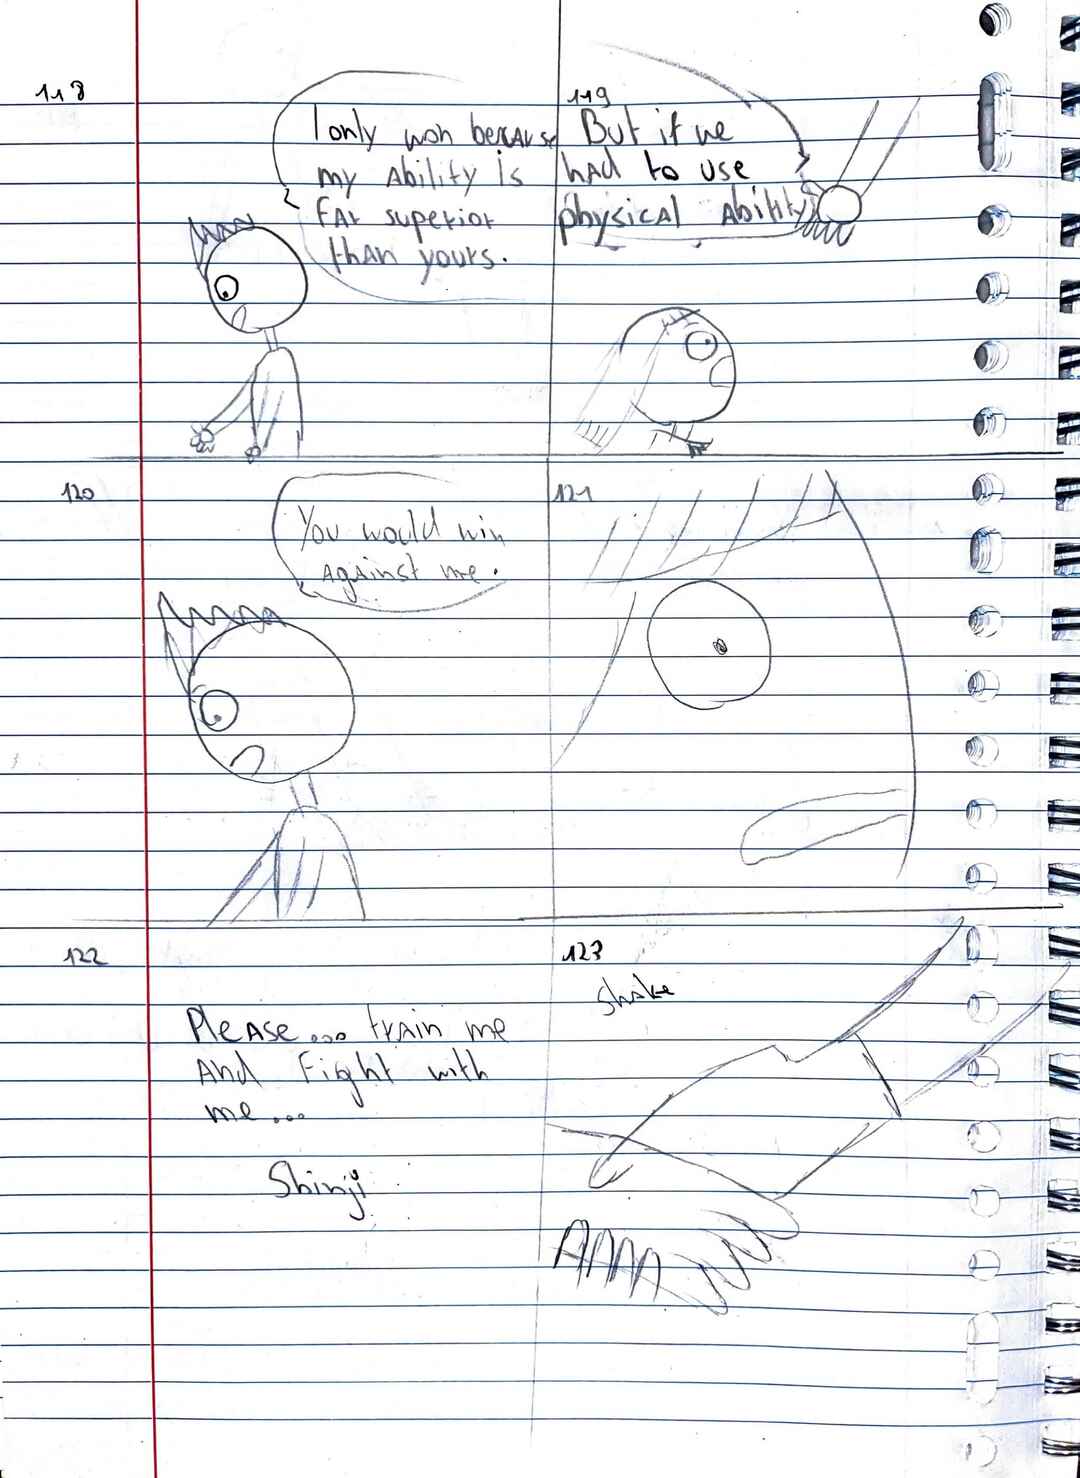 118
I only won because
my Ability is
FAr superior
thAn yours.
119
But if we
hAd to use
physicAl Ability
120
You would win
AgAinst me.
121
122
PleAse... trAin me
And Fight with
me...
Shinji
123
ShAke